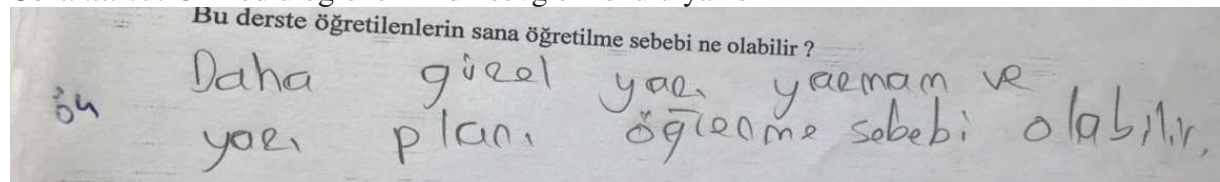 Bu derste öğretilenlerin sana öğretilme sebebi ne olabilir ?
Daha güzel yazı yazmam ve
yazı planı öğrenme sebebi olabilir.